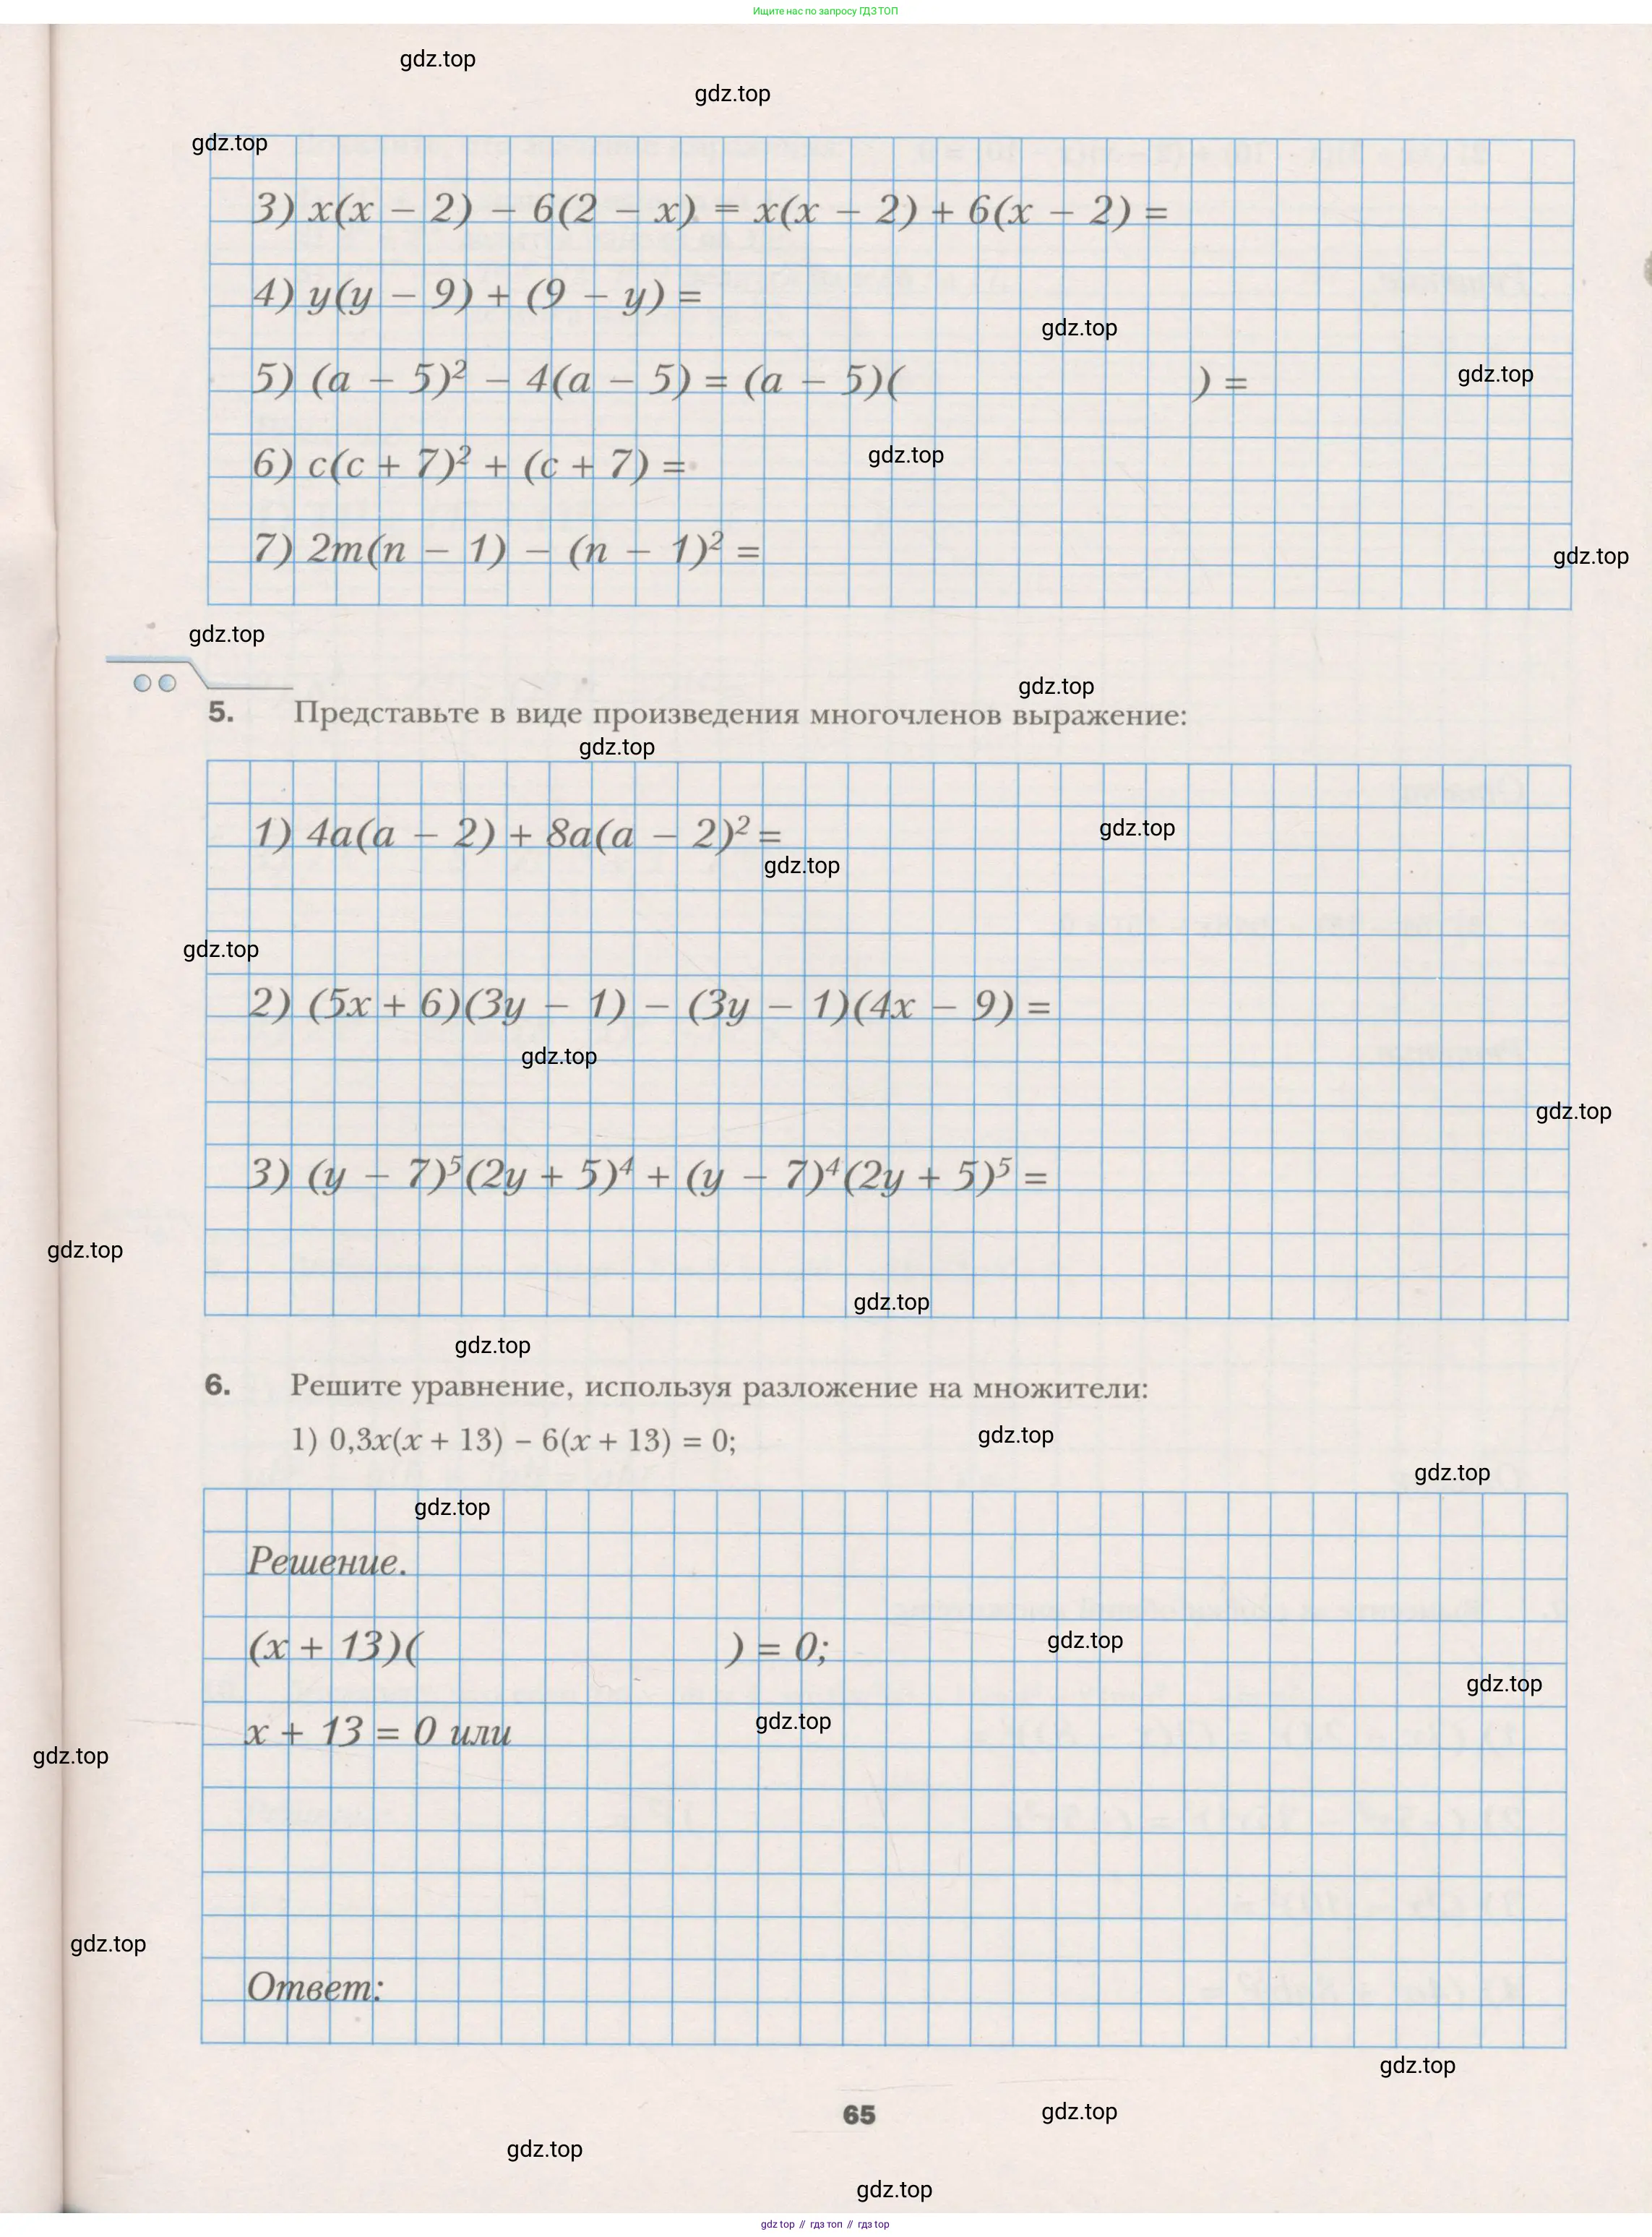 Ищите нас по запросу ГДЗ ТОП
gdz.top
gdz.top
gdz.top
3) x(x − 2) − 6(2 − x) = x(x − 2) + 6(x − 2) =
4) y(y − 9) + (9 − y) =
gdz.top
5) (a − 5)² − 4(a − 5) = (a − 5)( ) =
gdz.top
6) c(c + 7)² + (c + 7) =
gdz.top
7) 2m(n − 1) − (n − 1)² =
gdz.top
gdz.top
gdz.top
5. Представьте в виде произведения многочленов выражение:
gdz.top
1) 4a(a − 2) + 8a(a − 2)² =
gdz.top
gdz.top
gdz.top
2) (5x + 6)(3y − 1) − (3y − 1)(4x − 9) =
gdz.top
gdz.top
3) (y − 7)⁵(2y + 5)⁴ + (y − 7)⁴(2y + 5)⁵ =
gdz.top
gdz.top
gdz.top
6. Решите уравнение, используя разложение на множители:
1) 0,3x(x + 13) − 6(x + 13) = 0;
gdz.top
gdz.top
gdz.top
Решение.
(x + 13)( ) = 0;
gdz.top
gdz.top
x + 13 = 0 или
gdz.top
gdz.top
gdz.top
Ответ:
gdz.top
65
gdz.top
gdz.top
gdz.top
gdz top // гдз топ // гдз top